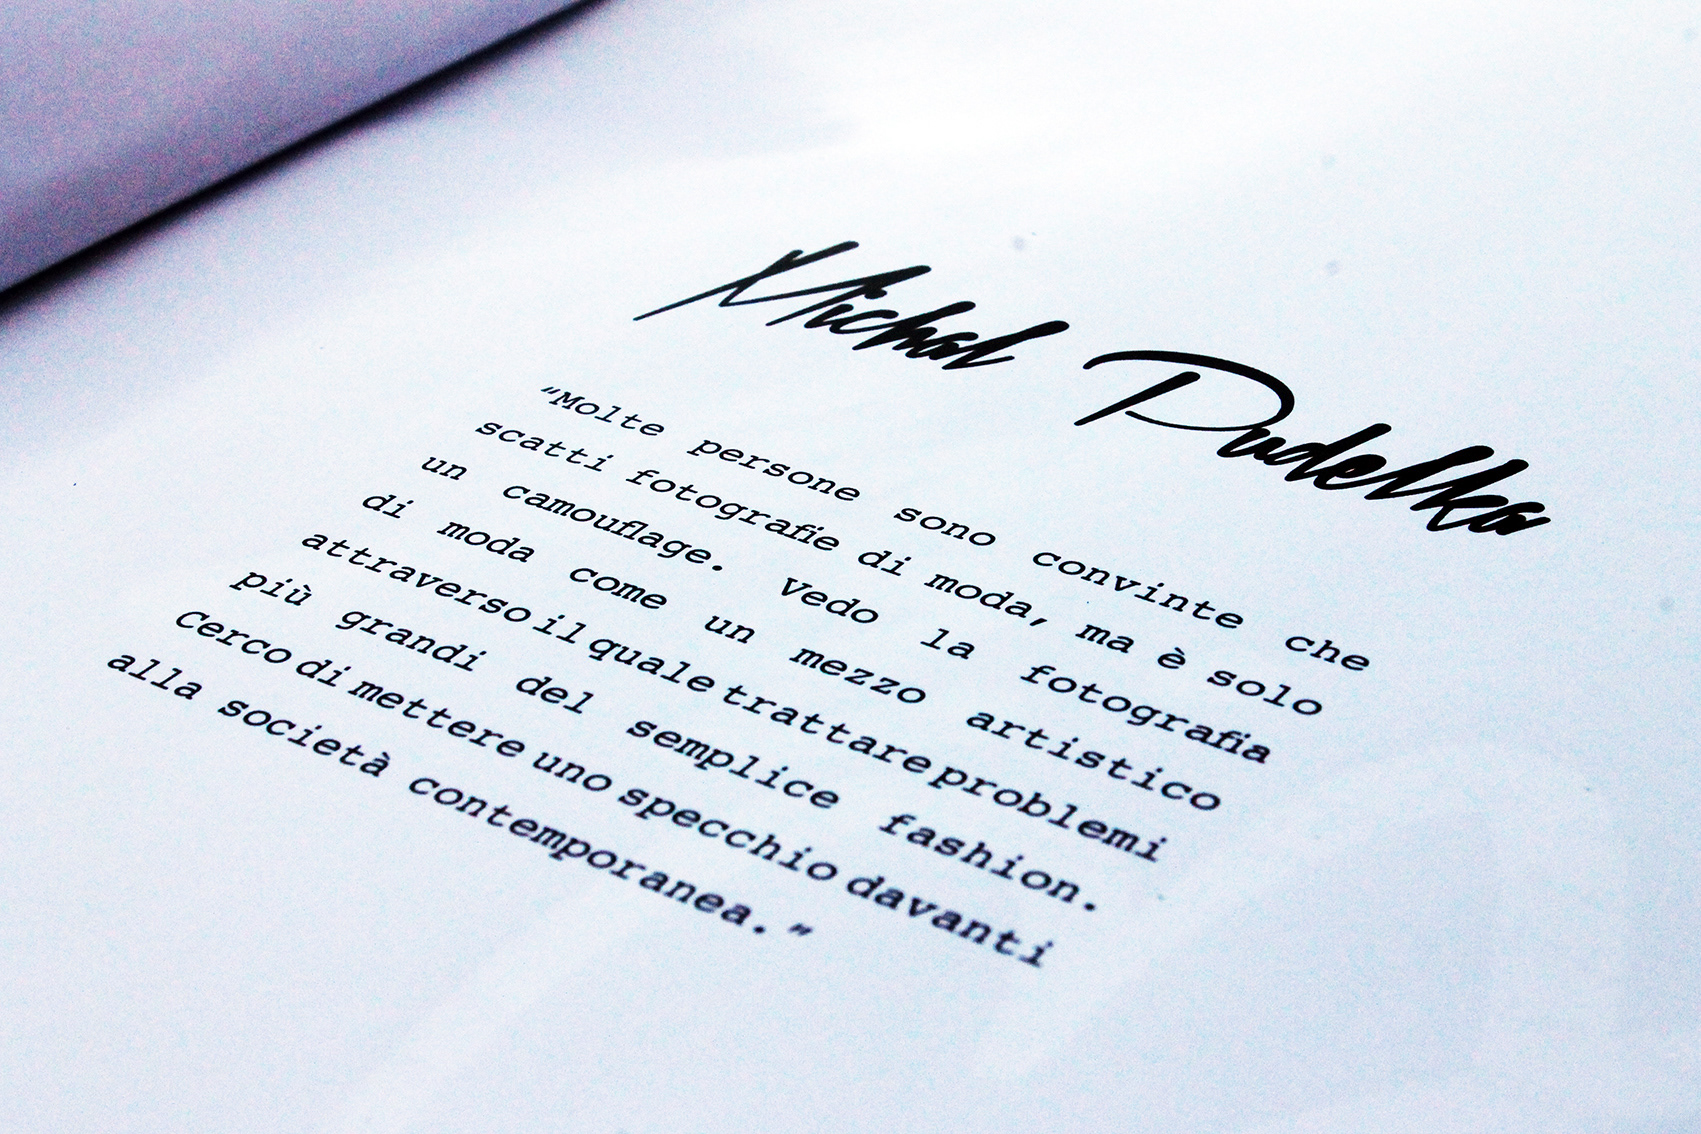 Michal Pudelka
“Molte persone sono convinte che
scatti fotografie di moda, ma è solo
un camouflage. Vedo la fotografia
di moda come un mezzo artistico
attraverso il quale trattare problemi
più grandi del semplice fashion.
Cerco di mettere uno specchio davanti
alla società contemporanea.”